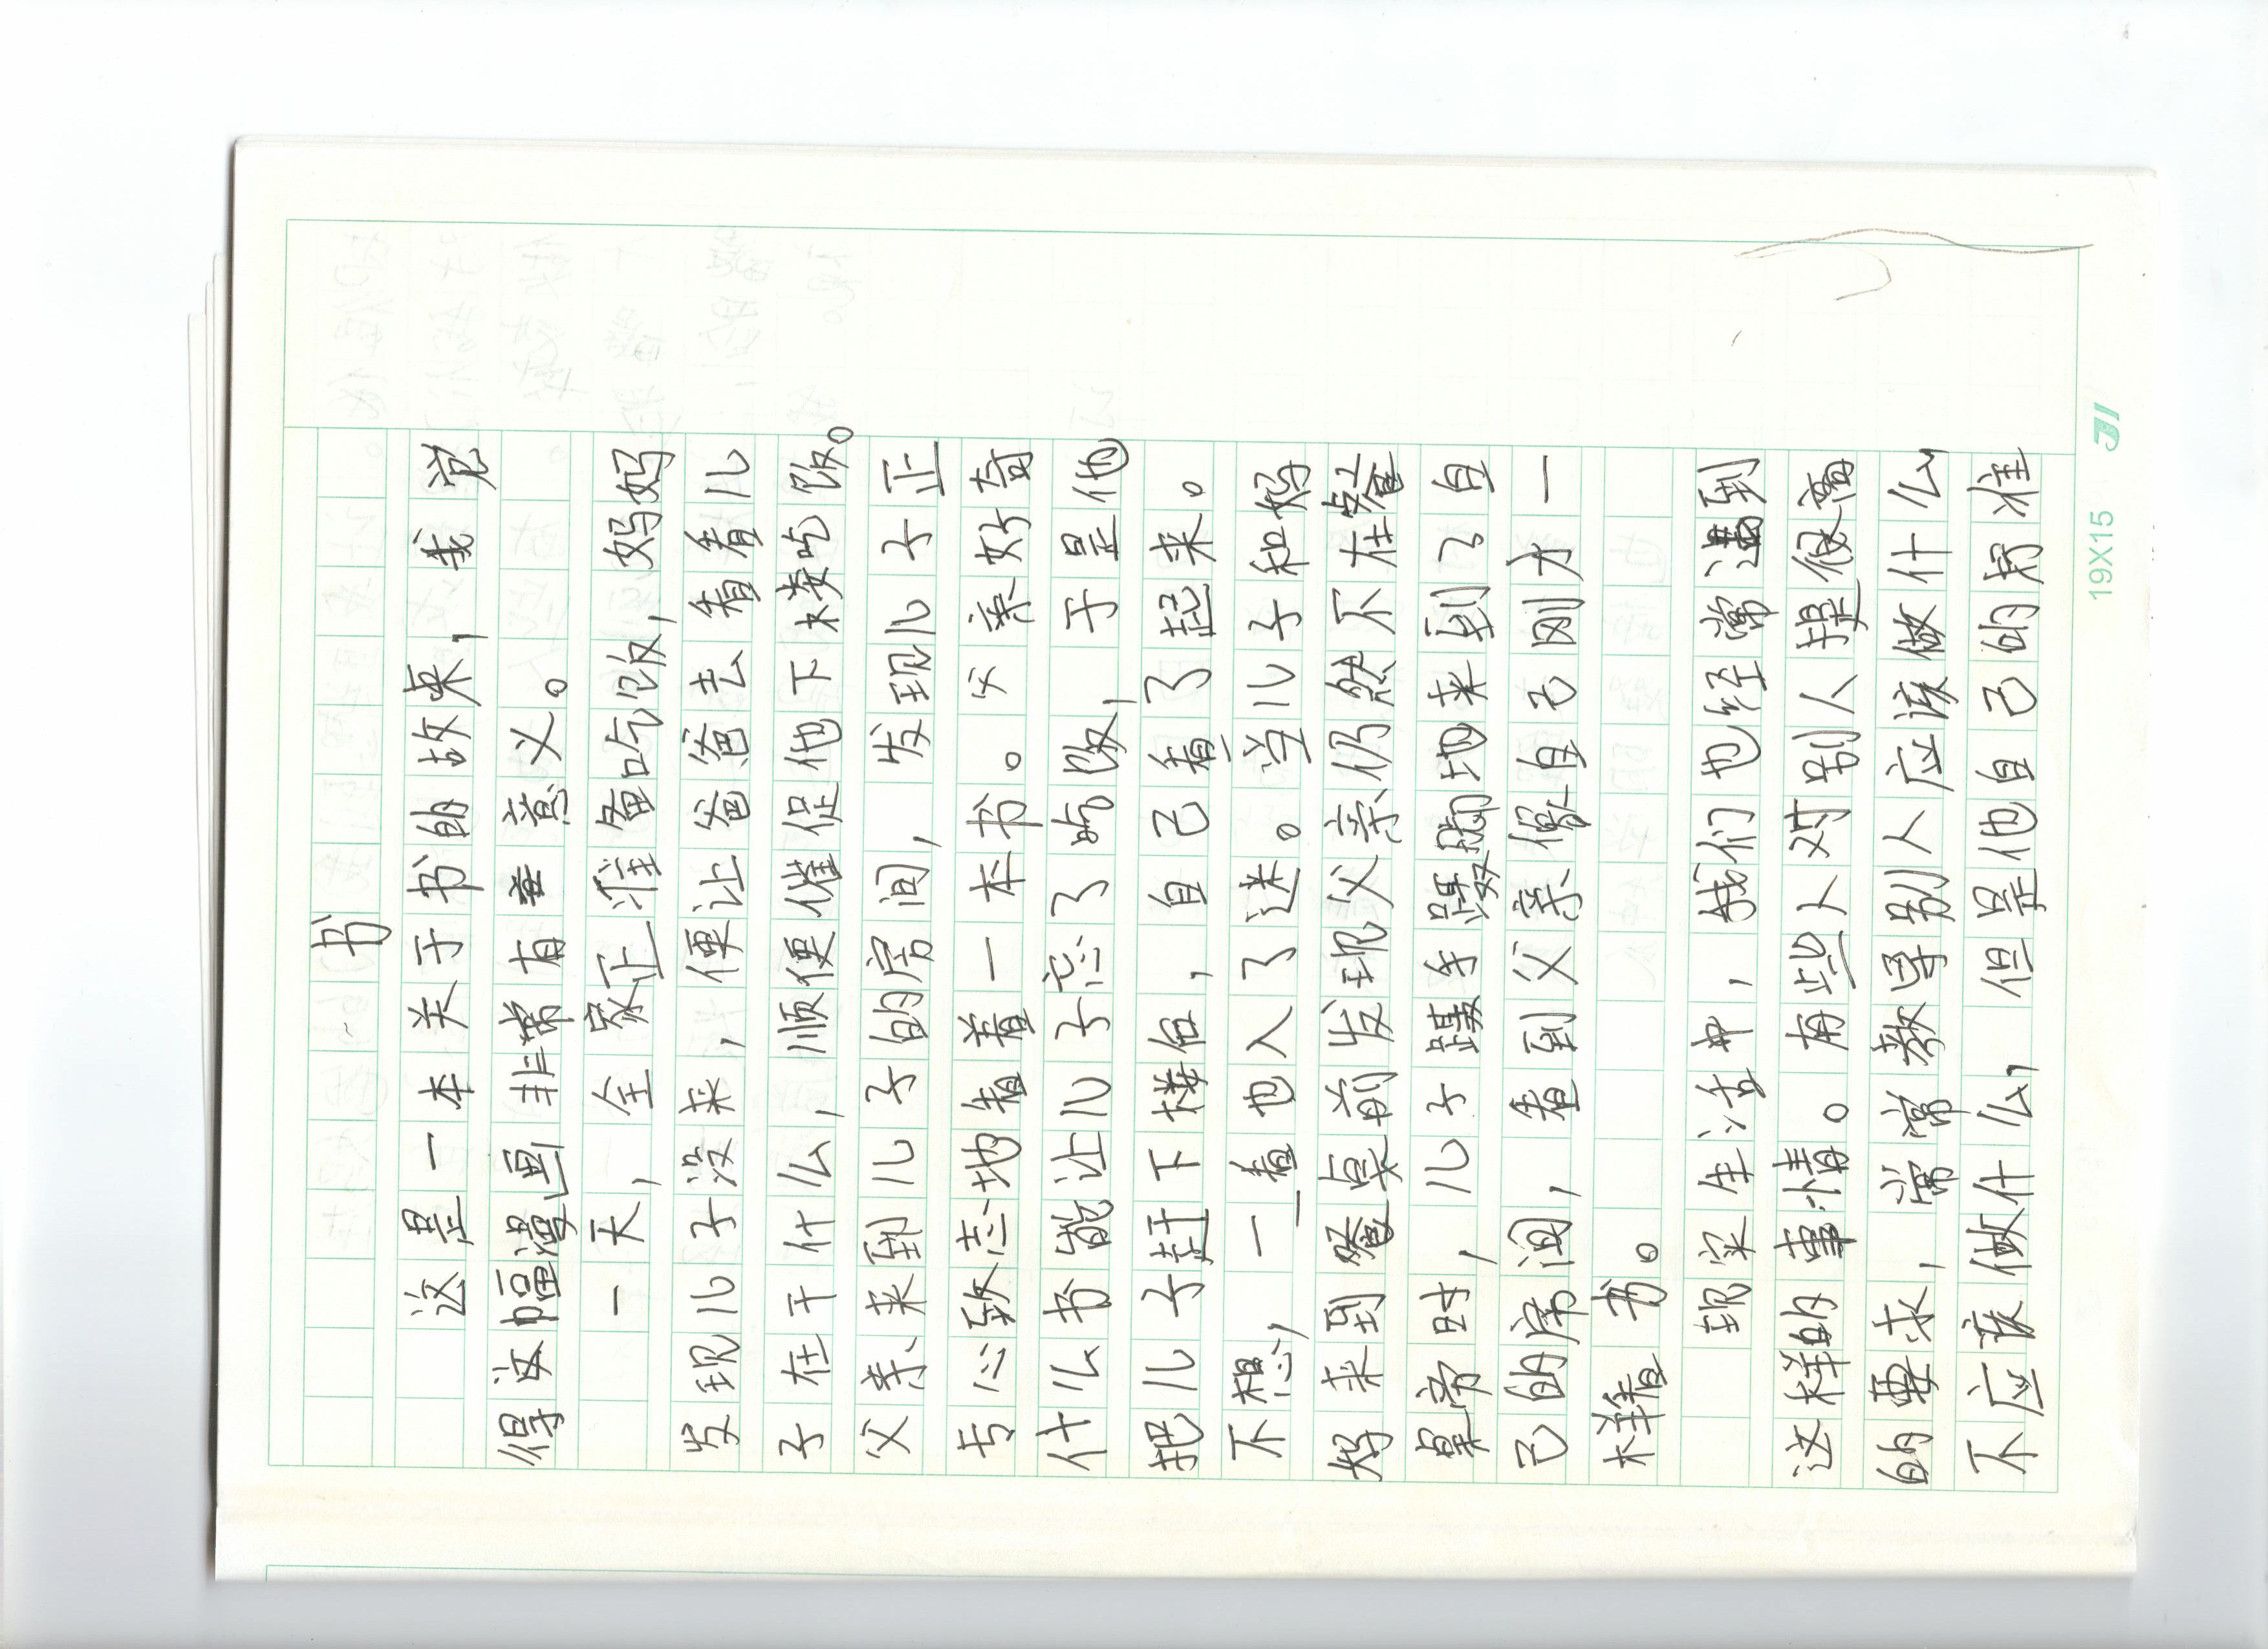 书
这是一本关于书的故事，我觉
得这幅漫画非常有意义。
一天，全家正准备吃饭，妈妈
发现儿子没来，便让爸爸去看看儿
子在干什么，顺便催促他下楼吃饭。
父亲来到儿子的房间，发现儿子正
专心致志地看着一本书。父亲好奇
什么书能让儿子忘了吃饭，于是他
把儿子赶下楼后，自己看了起来。
不想，一看也入了迷。当儿子和妈
妈来到餐桌前发现父亲仍然不在餐
桌旁时，儿子蹑手蹑脚地来到了自
己的房间，看到父亲像自己刚才一
样看书。
现实生活中，我们也经常遇到
这样的事情。有些人对别人提很高
的要求，常常教导别人应该做什么
不应该做什么，但是他自己的标准
19X15